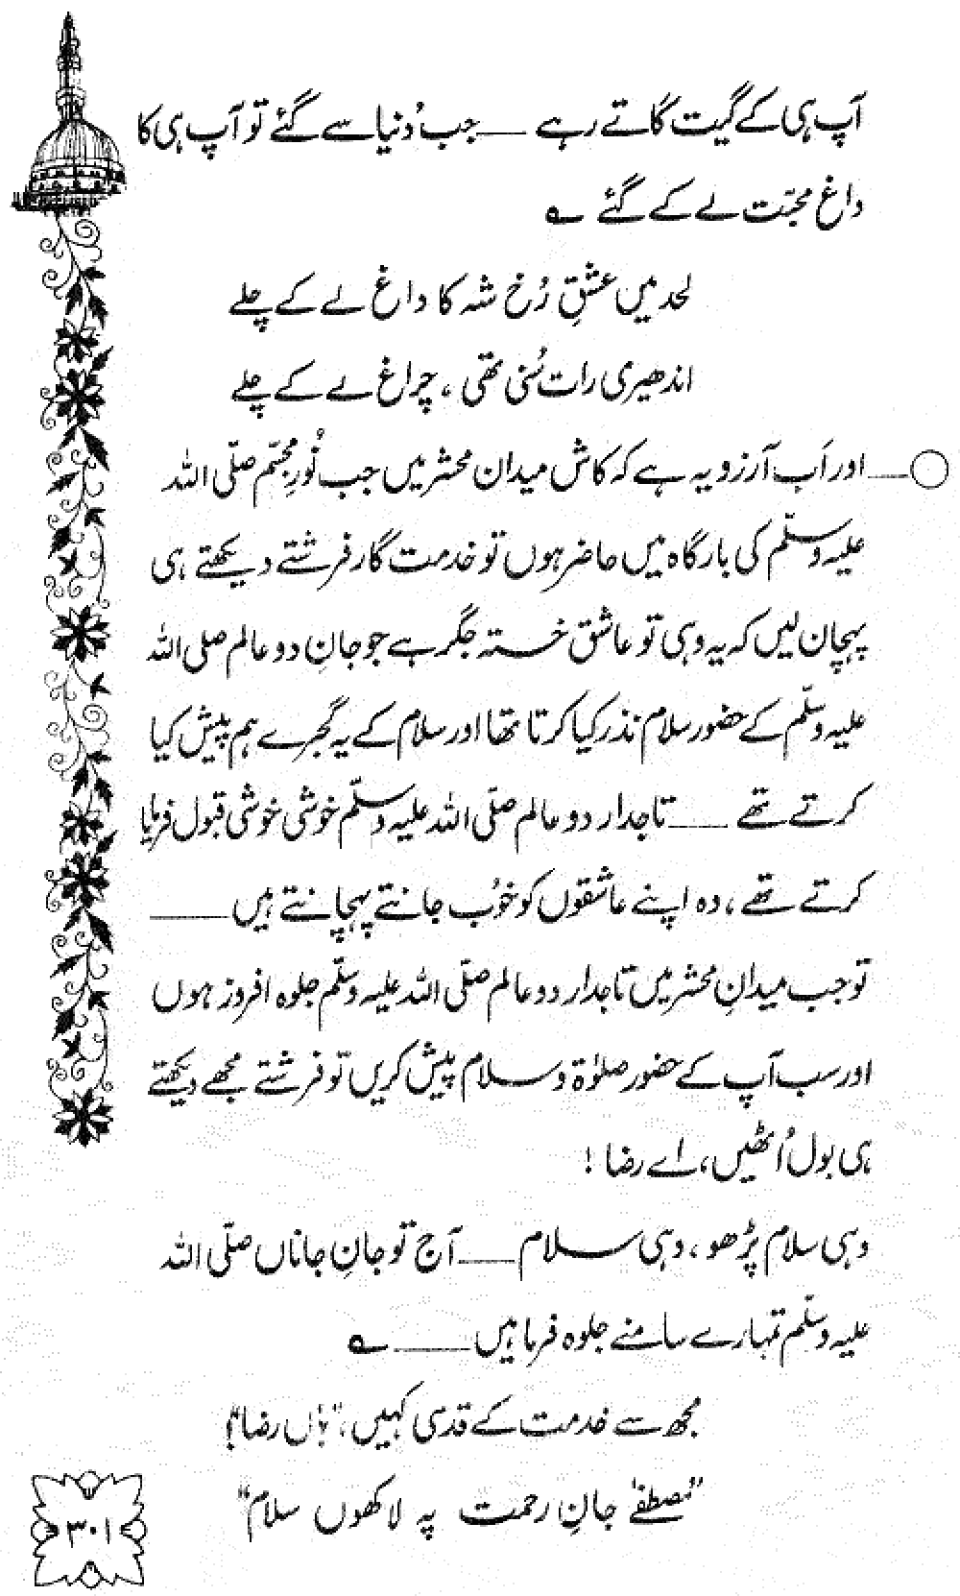 آپ ہی کے گیت گاتے رہے ـــــ جب دُنیا سے گئے تو آپ ہی کا
داغِ محبّت لے کے گئے ؎
لحد میں عشقِ رُخِ شہ کا داغ لے کے چلے
اندھیری رات سُنی تھی ، چراغ لے کے چلے
○ــــ اور اَب آرزو یہ ہے کہ کاش میدان محشر میں جب نُورِ مجسّم صلّی اللہ
علیہ وسلّم کی بارگاہ میں حاضر ہوں تو خدمت گار فرشتے دیکھتے ہی
پہچان لیں کہ یہ وہی تو عاشق خستہ جگر ہے جو جانِ دو عالم صلی اللہ
علیہ وسلّم کے حضور سلام نذر کیا کرتا تھا اور سلام کے یہ گجرے ہم پیش کیا
کرتے تھے ـــــ تاجدار دو عالم صلّی اللہ علیہ وسلّم خوشی خوشی قبول فرمایا
کرتے تھے ، وہ اپنے عاشقوں کو خُوب جانتے پہچانتے ہیں ـــــــ
تو جب میدانِ محشر میں تاجدار دو عالم صلّی اللہ علیہ وسلّم جلوہ افروز ہوں
اور سب آپ کے حضور صلوٰۃ و سلام پیش کریں تو فرشتے مجھے دیکھتے
ہی بول اُٹھیں، اے رضا !
وہی سلام پڑھو ، وہی سلام ـــــ آج تو جانِ جاناں صلّی اللہ
علیہ وسلّم تمہارے سامنے جلوہ فرما ہیں ـــــــ ؎
مجھ سے خدمت کے قدسی کہیں، "ہاں رضا"!
"مصطفےٰ جانِ رحمت پہ لاکھوں سلام"
۳۰۱